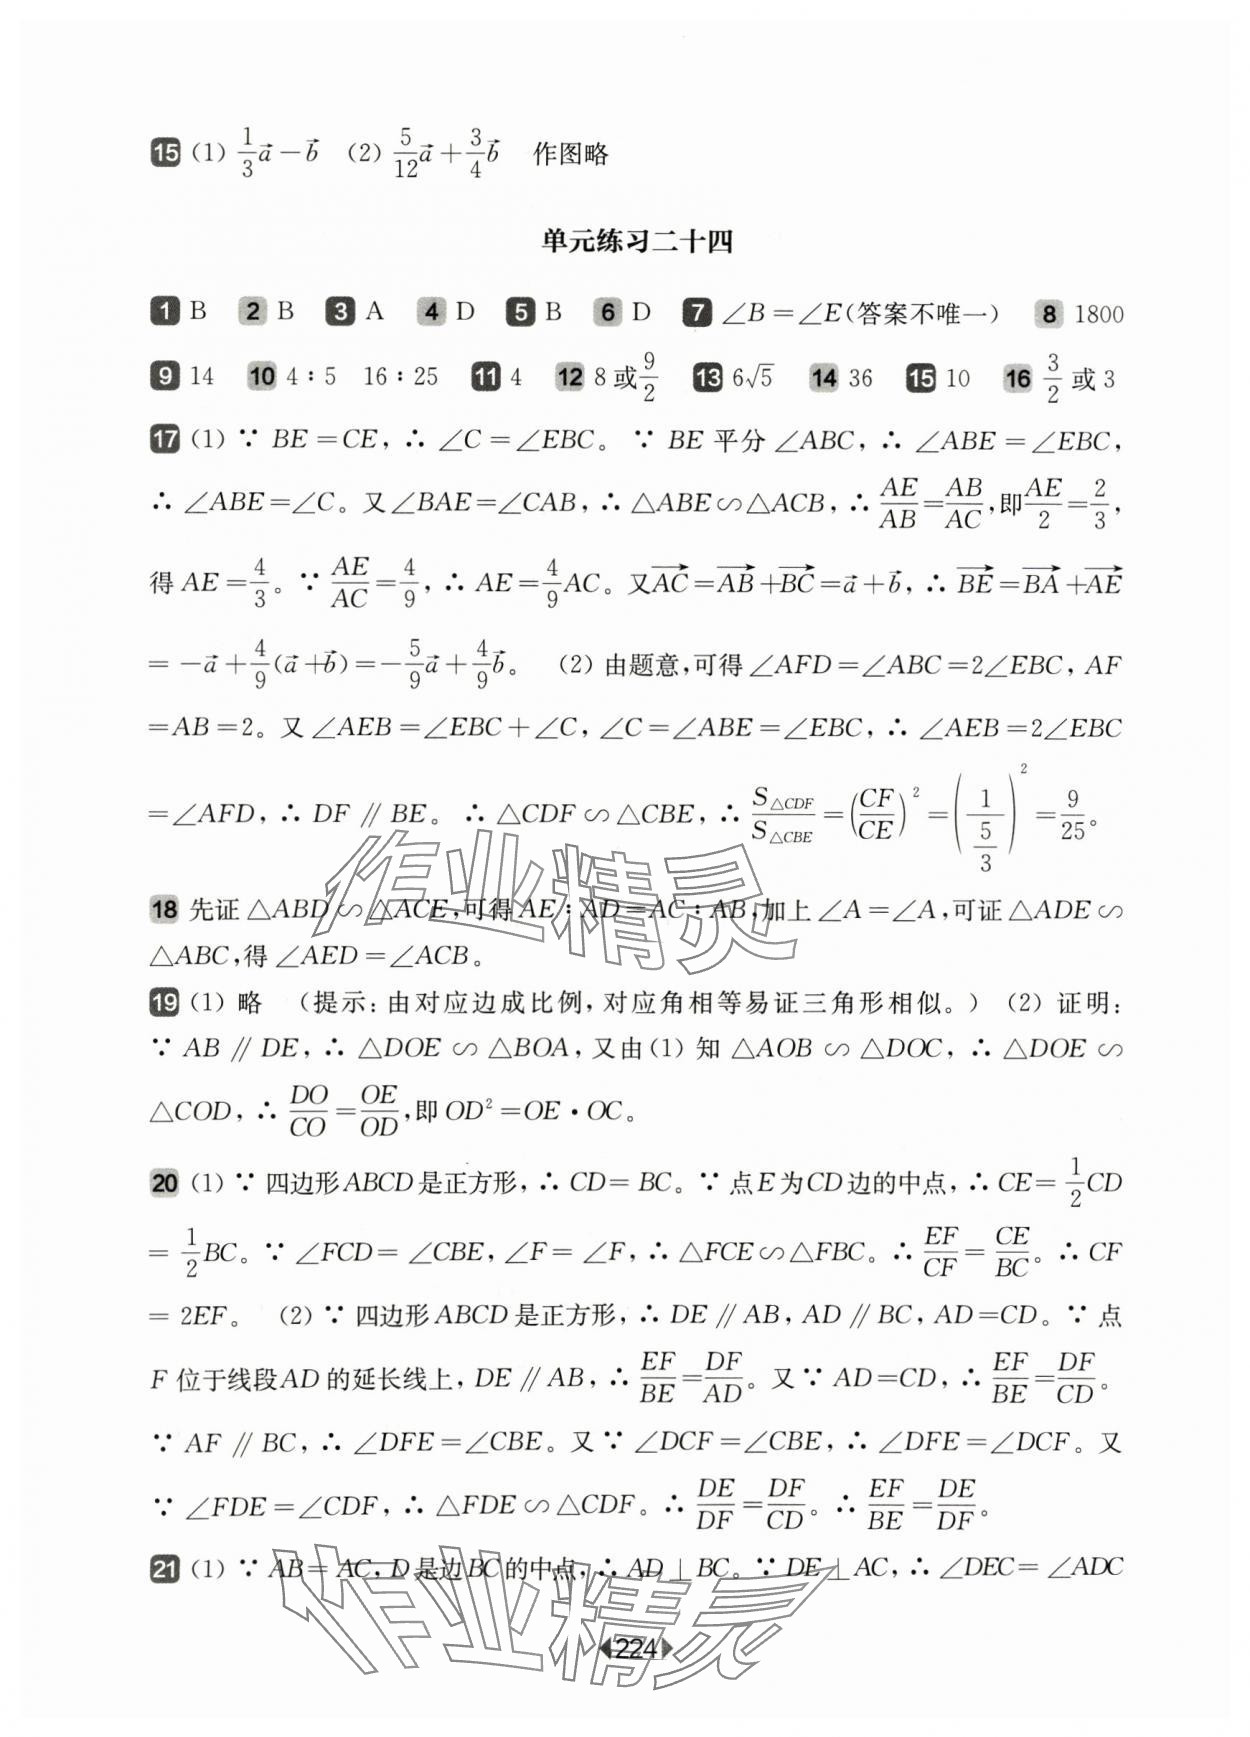 15 (1) 1/3 a⃗ − b⃗ (2) 5/12 a⃗ + 3/4 b⃗ 作图略
单元练习二十四
1 B 2 B 3 A 4 D 5 B 6 D 7 ∠B=∠E(答案不唯一) 8 1800
9 14 10 4∶5 16∶25 11 4 12 8或9/2 13 6√5 14 36 15 10 16 3/2或3
17 (1) ∵ BE=CE, ∴ ∠C=∠EBC。∵ BE平分∠ABC, ∴ ∠ABE=∠EBC,
∴ ∠ABE=∠C。又∠BAE=∠CAB, ∴ △ABE∽△ACB, ∴ AE/AB=AB/AC, 即AE/2=2/3,
得AE=4/3。∵ AE/AC=4/9, ∴ AE=4/9 AC。又AC⃗=AB⃗+BC⃗=a⃗+b⃗, ∴ BE⃗=BA⃗+AE⃗
=−a⃗+4/9(a⃗+b⃗)=−5/9 a⃗+4/9 b⃗。 (2) 由题意,可得∠AFD=∠ABC=2∠EBC, AF
=AB=2。又∠AEB=∠EBC+∠C, ∠C=∠ABE=∠EBC, ∴ ∠AEB=2∠EBC
=∠AFD, ∴ DF∥BE。∴ △CDF∽△CBE, ∴ S△CDF/S△CBE=(CF/CE)²=(1/(5/3))²=9/25。
18 先证△ABD∽△ACE,可得AE∶AD=AC∶AB,加上∠A=∠A,可证△ADE∽
△ABC,得∠AED=∠ACB。
19 (1) 略 (提示:由对应边成比例,对应角相等易证三角形相似。) (2) 证明:
∵ AB∥DE, ∴ △DOE∽△BOA, 又由(1)知△AOB∽△DOC, ∴ △DOE∽
△COD, ∴ DO/CO=OE/OD, 即OD²=OE·OC。
20 (1) ∵ 四边形ABCD是正方形, ∴ CD=BC。∵ 点E为CD边的中点, ∴ CE=1/2 CD
=1/2 BC。∵ ∠FCD=∠CBE, ∠F=∠F, ∴ △FCE∽△FBC。∴ EF/CF=CE/BC。∴ CF
=2EF。 (2) ∵ 四边形ABCD是正方形, ∴ DE∥AB, AD∥BC, AD=CD。∵ 点
F位于线段AD的延长线上, DE∥AB, ∴ EF/BE=DF/AD。又∵ AD=CD, ∴ EF/BE=DF/CD。
∵ AF∥BC, ∴ ∠DFE=∠CBE。又∵ ∠DCF=∠CBE, ∴ ∠DFE=∠DCF。又
∵ ∠FDE=∠CDF, ∴ △FDE∽△CDF。∴ DE/DF=DF/CD。∴ EF/BE=DE/DF。
21 (1) ∵ AB=AC, D是边BC的中点, ∴ AD⊥BC。∵ DE⊥AC, ∴ ∠DEC=∠ADC
224
作业精灵
作业精灵